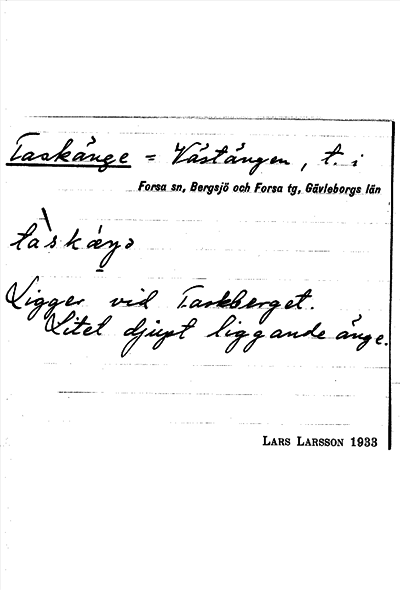 Taskänge = Västängen, t. i
Forsa sn, Bergsjö och Forsa tg, Gävleborgs län
Ligger vid Taskberget.
Litet djupt liggande änge.
LARS LARSSON 1933